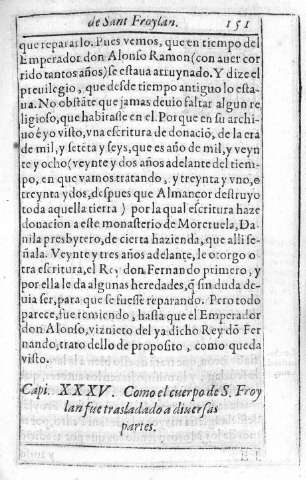 de Sant Froylan. 151
que repararlo. Pues vemos, que en tiempo del
Emperador don Alonso Ramon (con auer cor
rido tantos años) se estaua arruynado. Y dize el
preuilegio, que desde tiempo antiguo lo esta-
ua. No obstãte que jamas deuio faltar algun re
ligioso, que habitasse en el. Porque en su archi-
uo é yo visto, vna escritura de donació, de la era
de mil, y setēta y seys, que es año de mil, y veyn
te y ocho (veynte y dos años adelante del tiem-
po, en que vamos tratando, y treynta y vno, o
treynta y dos, despues que Almançor destruyo
toda aquella tierra) por la qual escritura haze
donacion a este monasterio de Moreruela, Da-
nila presbytero, de cierta hazienda, que alli se-
ñala. Veynte y tres años adelante, le otorgo o
tra escritura, el Rey don Fernando primero, y
por ella le da algunas heredades, q̃ sin duda de-
uia ser, para que se fuesse reparando. Pero todo
parece, fue remiendo, hasta que el Emperador
don Alonso, viznieto del ya dicho Rey dõ Fer
nando, trato dello de proposito, como queda
visto.
Capi. XXXV. Como el cuerpo de S. Froy
lan fue trasladado a diuersas
partes.